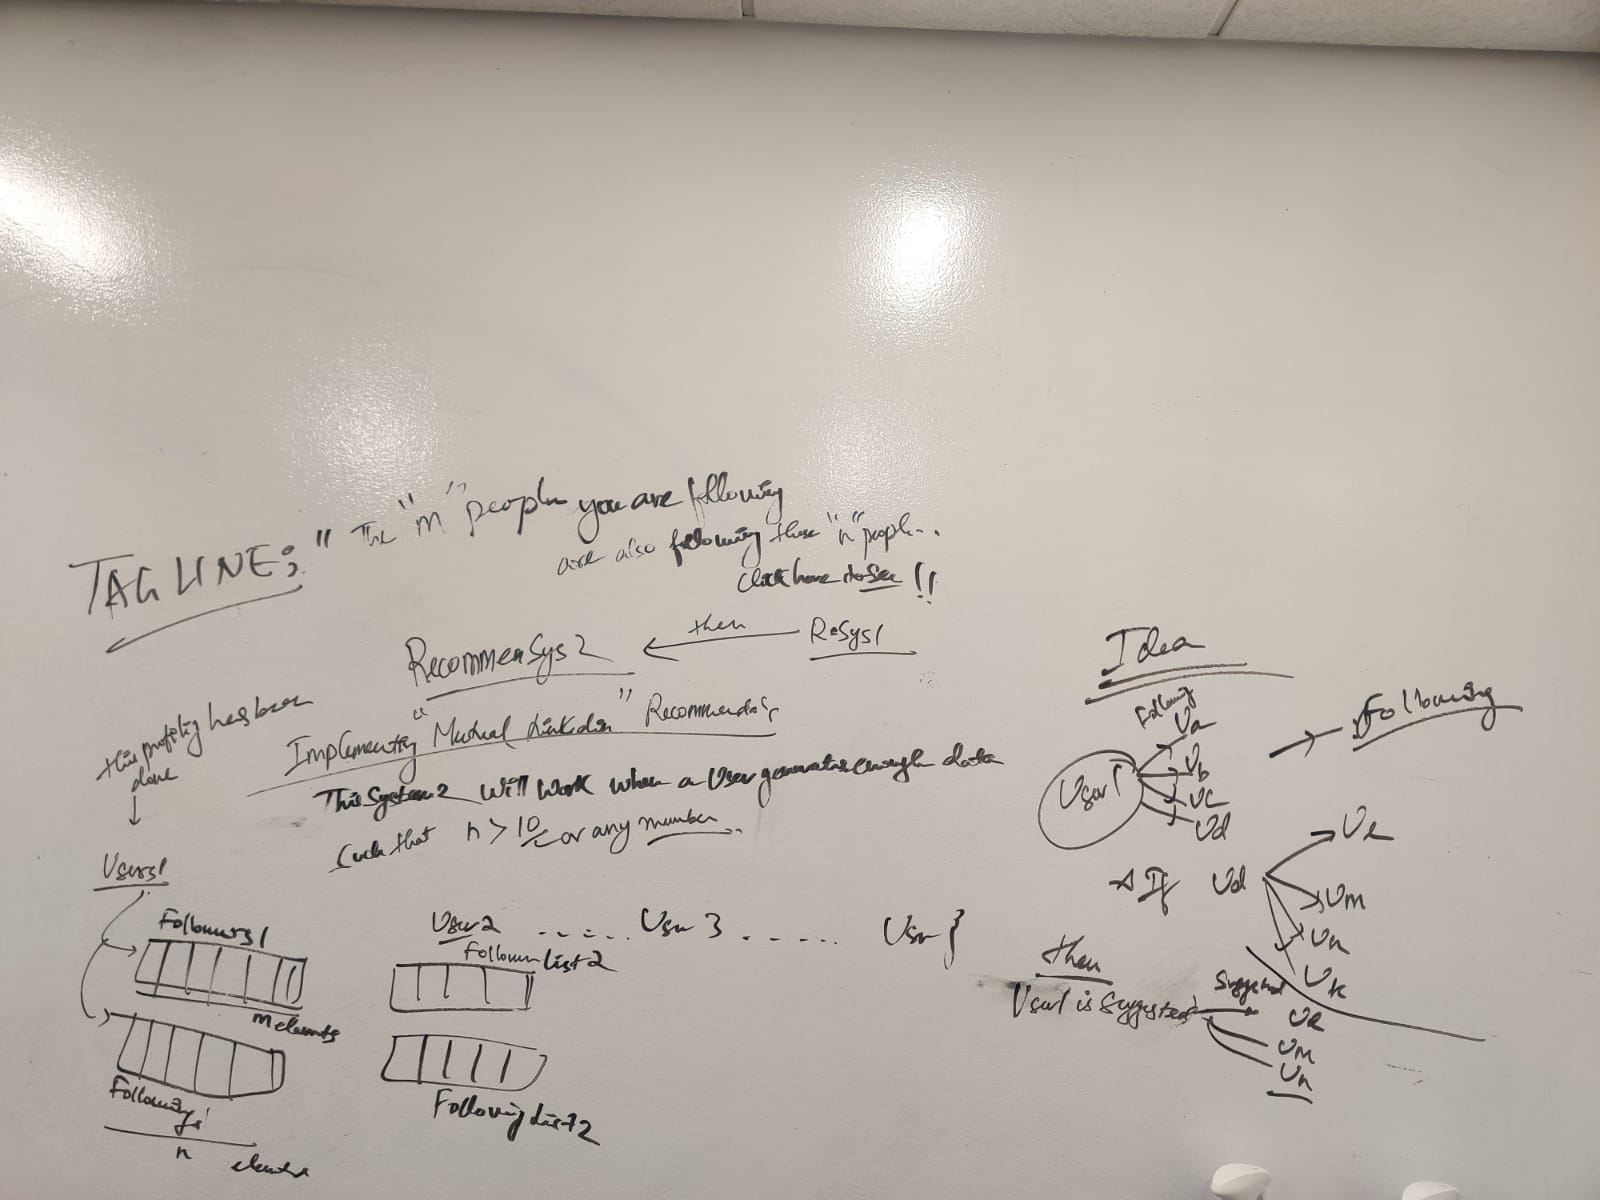 TAGLINE; " The "m" people you are following
are also following these "n" people..
Click here to see !!
RecommenSys2 ← then ReSys1
Implementing "Mutual Linkdin" Recommendat
This System2 will work when a User generates enough data
Such that n > 10 or any number..
this profiling has been
done
↓
Users1
Followers1
m elements
Following1
n elements
User2 ...... User3 ...... User}
Follower List2
Following List2
Idea
Following → Following
User1
Ua
Ub
Uc
Ud
→ If Ud
Ue
Um
Un
Uk
then
User1 is suggested
Suggested
Ue
Um
Un